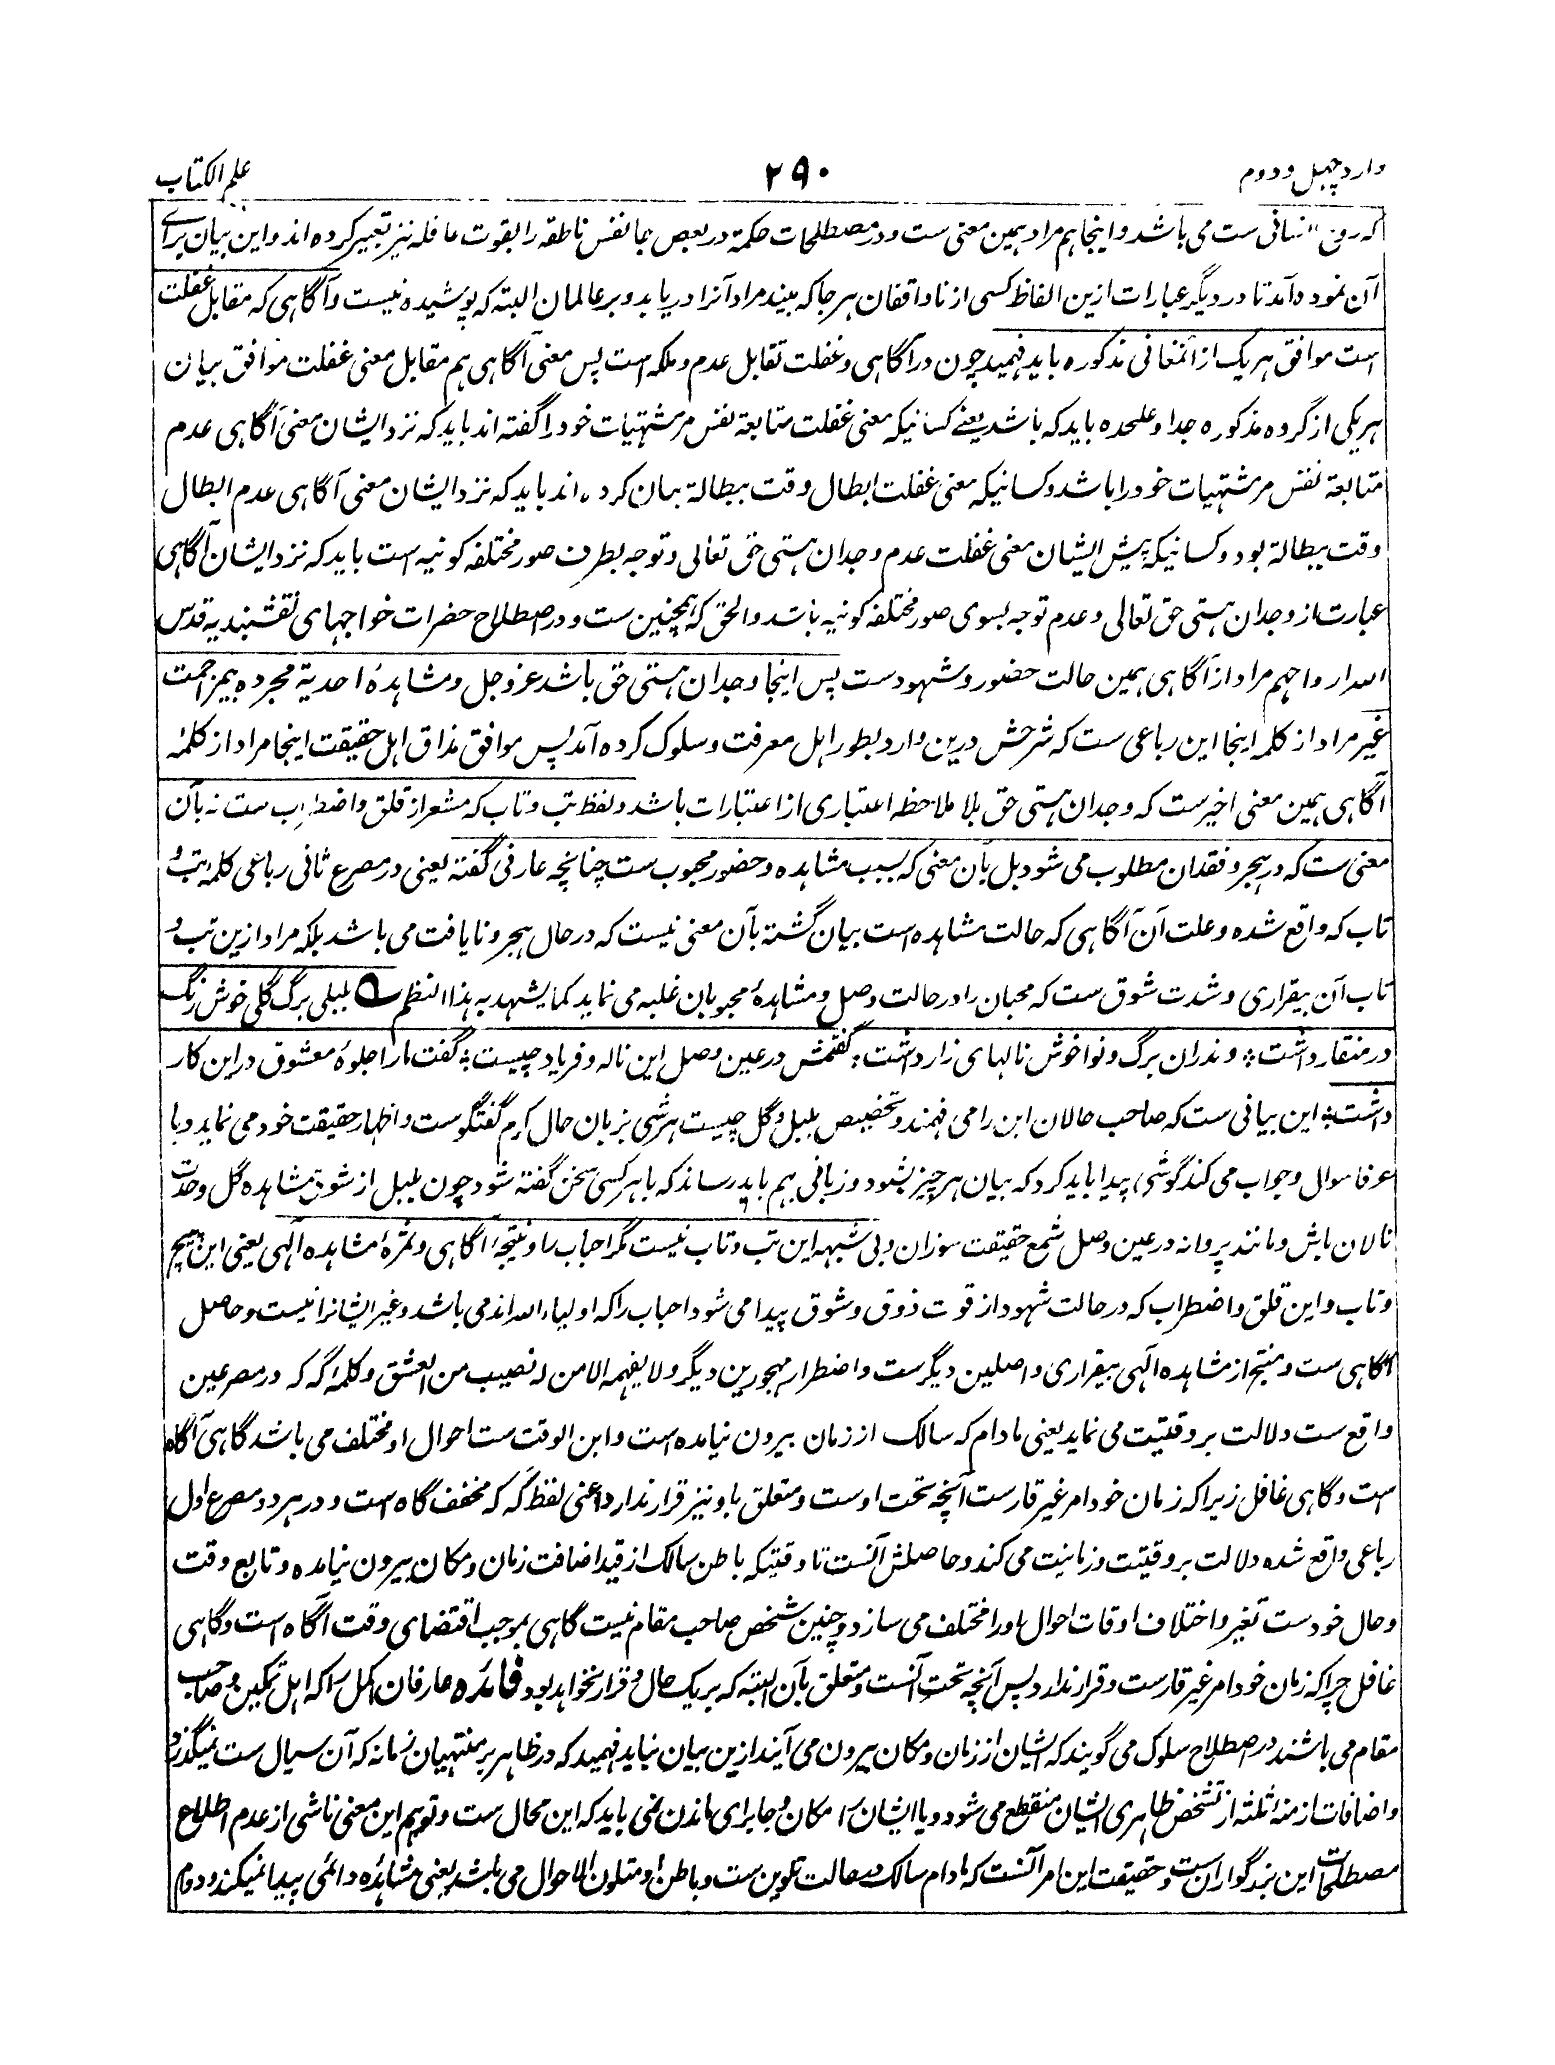 وارد چهل و دوم
۲۹۰
علم الکتاب
که روح انسانی ست می باشد و اینجا هم مراد همین معنی ست و در مصطلحات حکمة در بعض جا نفس ناطقه را بقوت عاقله نیز تعبیر کرده اند و این بیان برای
آن نموده آمد تا در دیگر عبارات ازین الفاظ کسی از ناواقفان هر جا که بیند مراد آنرا دریابد و بر عالمان البته که پوشیده نیست و آگاهی که مقابل غفلت
است موافق هر یک از آنمعانی مذکوره باید فهمید چون در آگاهی و غفلت تقابل عدم و ملکه است پس معنی آگاهی هم مقابل معنی غفلت موافق بیان
هر یکی از گروه مذکوره جدا و علحده باید که باشد یعنے کسانیکه معنی غفلت متابعة نفس مر مشتهیات خود را گفته اند باید که نزد ایشان معنی آگاهی عدم
متابعة نفس مر مشتهیات خود را باشد و کسانیکه معنی غفلت ابطال وقت ببطالة بیان کرده اند باید که نزد ایشان معنی آگاهی عدم ابطال
وقت ببطالة بود و کسانیکه پیش ایشان معنی غفلت عدم وجدان هستی حق تعالی و توجه بطرف صور مختلفه کونیه است باید که نزد ایشان آگاهی
عبارت از وجدان هستی حق تعالی و عدم توجه بسوی صور مختلفه کونیه باشد و الحق که همچنین ست و در اصطلاح حضرات خواجهای نقشبندیه قدس
الله ارواحهم مراد از آگاهی همین حالت حضور و شهودست پس اینجا وجدان هستی حق باشد عز و جل و مشاهدهٔ احدیة مجرده بیمزاحمت
غیر مراد از کلمه اینجا این رباعی ست که شرحش درین وارد بطور اهل معرفت و سلوک کرده آمد پس موافق مذاق اهل حقیقت اینجا مراد از کلمهٔ
آگاهی همین معنی اخیرست که وجدان هستی حق بلا ملاحظه اعتباری از اعتبارات باشد و لفظ تب و تاب که مشعر از قلق و اضطراب ست نه بآن
معنی ست که در هجر و فقدان مطلوب می شود بل بآن معنی که بسبب مشاهده و حضور محبوب ست چنانچه عارفی گفته یعنی در مصرع ثانی رباعی کلمه تب و
تاب که واقع شده و علت آن آگاهی که حالت مشاهده است بیان گشته بآن معنی نیست که در حال هجر و نایافت می باشد بلکه مراد ازین تب و
تاب آن بیقراری و شدت شوق ست که محبان را در حالت وصل و مشاهدهٔ محبوبان غلبه می نماید کما یشهد به هذا النظم ه بلبلی برگ گلی خوش رنگ
در منقار داشت ؛ و ندران برگ و نوا خوش نالهای زار داشت ؛ گفتمش در عین وصل این ناله و فریاد چیست ؛ گفت ما را جلوهٔ معشوق در این کار
داشت ؛ این بیانی ست که صاحب حالان این را می فهمند و تخصیص بلبل و گل چیست هر شی بزبان حال گرم گفتگوست و اظهار حقیقت خود می نماید و با
عرفا سوال و جواب می کند گوشی پیدا باید کرد که بیان هر چیز بشنود و زبانی بهم باید رساند که با هر کسی سخن گفته شود چون بلبل از شوق مشاهده گل وحدت
نالان باش و مانند پروانه در عین وصل شمع حقیقت سوزان و بی شبهه این تب و تاب نیست مگر احباب را و نتیجهٔ آگاهی و ثمرهٔ مشاهده الهی یعنی این پیچ
و تاب و این قلق و اضطراب که در حالت شهود از قوت ذوق و شوق پیدا می شود احباب را که اولیاء الله اند می باشد و غیر ایشانرا نیست و حاصل
آگاهی ست و منتج از مشاهده الهی بیقراری واصلین دیگر ست و اضطرار مهجورین دیگر و لا یفهمه الا من له نصیب من العشق و کلمه گه که در مصرعین
واقع ست دلالت بر وقتیت می نماید یعنی مادام که سالک از زمان بیرون نیامده است و ابن الوقت ست احوال او مختلف می باشد گاهی آگاه
است و گاهی غافل زیرا که زمان خود امر غیر قارست آنچه تحت اوست و متعلق باو نیز قرار ندارد اعنی لفظ گه که مخفف گاه است و در هر دو مصرع اول
رباعی واقع شده دلالت بر وقتیت و زمانیت می کند و حاصلش آنست تا وقتیکه باطن سالک از قید اضافت زمان و مکان بیرون نیامده و تابع وقت
و حال خودست تغیر و اختلاف اوقات احوال او را مختلف می سازد و چنین شخص صاحب مقام نیست گاهی بموجب اقتضای وقت آگاه است و گاهی
غافل چرا که زمان خود امر غیر قارست و قرار ندارد پس آنچه تحت آنست و متعلق بآن البته که بر یک حال و قرار نخواهد بود فائده عارفان اکمل را که اهل تمکین و صاحب
مقام می باشند در اصطلاح سلوک می گویند که ایشان از زمان و مکان بیرون می آیند ازین بیان نباید فهمید که در ظاهر بر منتهیان زمانه که آن سیال ست نمیگذرد
و اضافات ازمنه ثلثه از تشخص ظاهری ایشان منقطع می شود و یا ایشان را مکان و جا برای ماندن نمی باید که این محال ست و توهم این معنی ناشی از عدم اطلاع
مصطلحات این بزرگواران ست و حقیقت این امر آنست که مادام سالک در حالت تلوین ست و باطن او متلون الاحوال می باشد یعنی مشاهدهٔ دائمی پیدا نمیکند و دوام